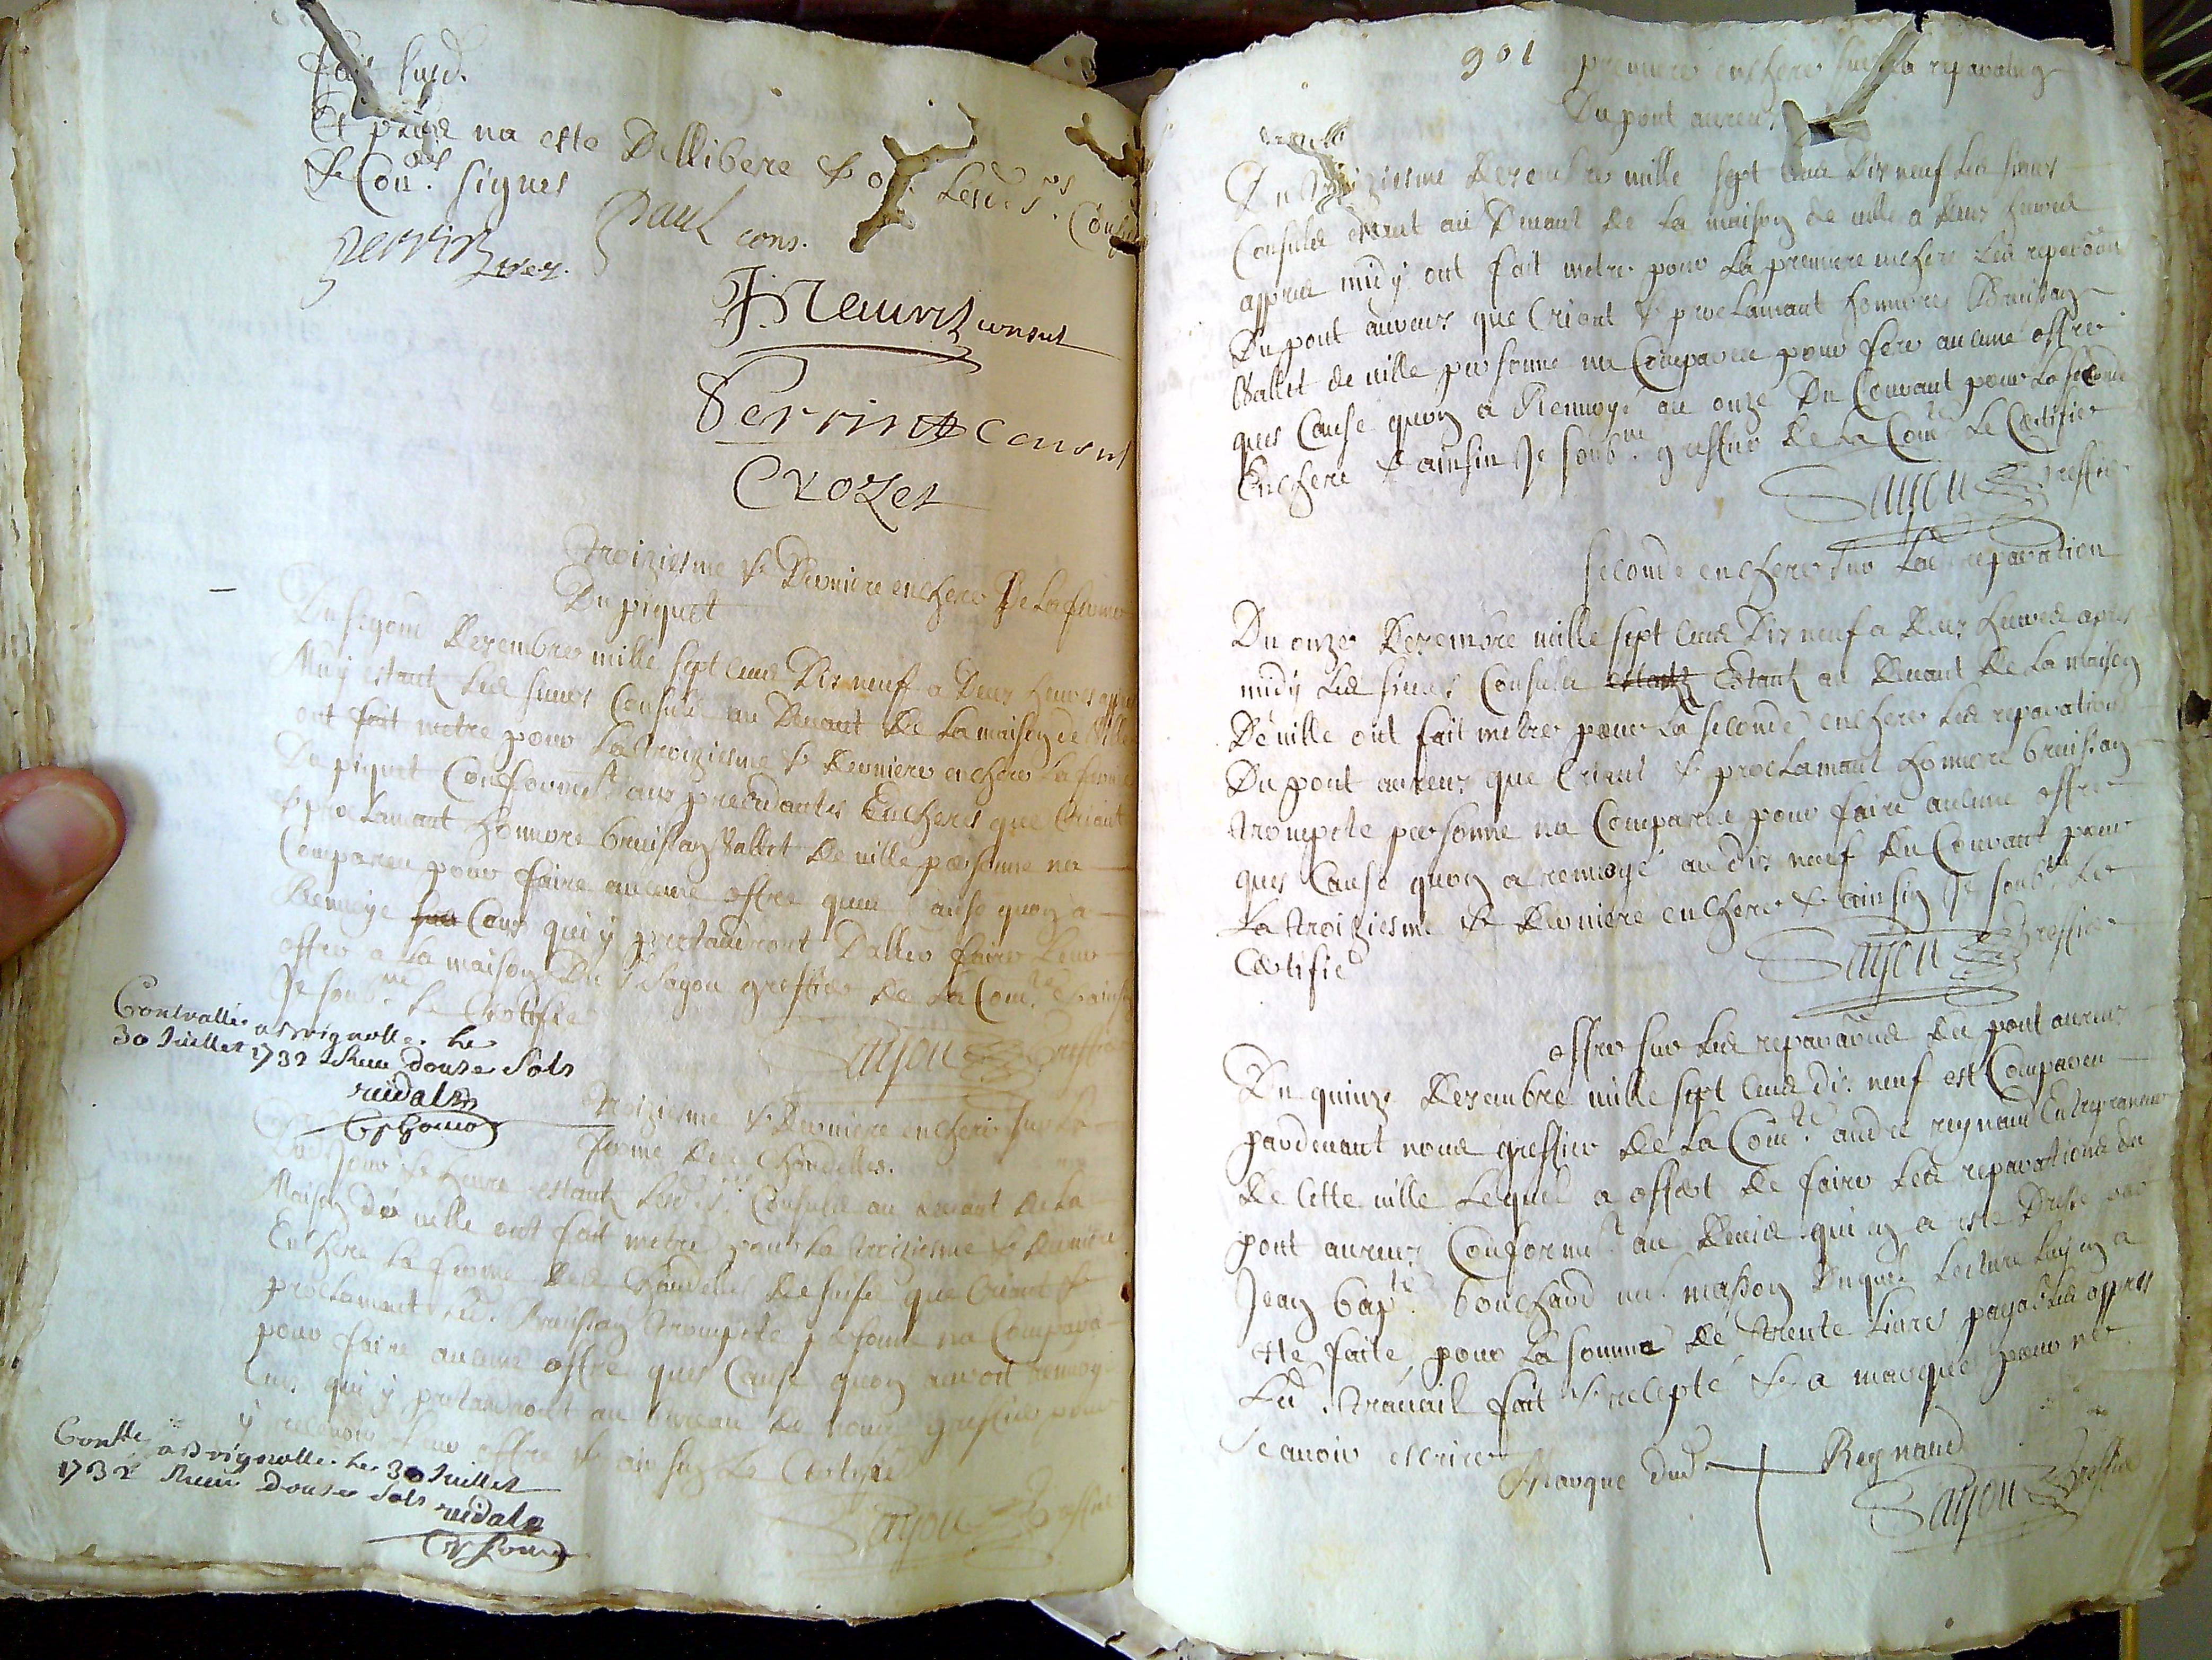 fait susd.
Et plus na este Dellibere & on Lesd. srs. Consuls
& Con.ers signes
perrin
Paul cons.
J. Neauvit consul
Perrin Consul
Crozet
troiziesme & Derniere enchere De la ferme
Du piquet
Du segond Dezembre mille sept cens Dix neuf a Deux heures appres
Midy estant Les sieurs Consuls au Devant De La maison de Ville
ont fait metre pour La troiziesme & Derniere enchere La ferme
Du piquet Conformemt. aux precedantes Encheres que Criant
& proclamant honnore bruissan Vallet De ville personne na
Compareu pour faire aucune offre quer Cause quon a
Renvoye Ceux qui y pretandront Daller faire Leur
offre a La maison Du S. Sayou greffier De La Com.te & ainsin
Je soub.ne Le Certifie
Sayou Greffier
Controllé a Brignolle le
30 Juillet 1732 Receu douze sols
vidal
troiziesme & Derniere enchere sur La
ferme Des Chandelles.
Dud. Jour & heure estant Lesd. srs. Consuls au Devant De La
Maison de ville ont fait metre pour La troiziesme & Derniere
Enchere La ferme Des Chandelles De suif que Criant &
proclamant led. Bruissan trompete personne na Compareu
pour faire aucune offre quer Cause quon auroit renvoyé
Ceux qui y pretandront au bureau De nous greffier pour
y recevoir Leur offre & ainsin Le Certifie
Sayou Greffier
Contllé a Brignolle le 30 Juillet
1732 Receu douze sols
vidal
901 premiere enchere sur la reparation
Du pont aureux
Du troiziesme Dezembre mille sept cens Dix neuf Les sieurs
Consuls estant au Devant De La maison de ville a Deux heures
appres midy ont fait metre pour La premiere enchere Les reparaõns
Du pont aureux que Criant & proclamant honnore Bruissan
Vallet de ville personne na Compareu pour fere aucune offre
quer Cause quon a Renvoyé au onze Du Courant pour La seconde
Enchere & ainsin Je soub.ne greffier De La Com.te Le Certifie
Sayou Greffier
seconde enchere sur Lad. reparation
Du onze Dezembre mille sept cens Dix neuf a Deux heures apres
midy Les sieurs Consuls estant Estant au Devant De La maison
De ville ont fait metre pour La seconde enchere Les reparations
Du pont aureux que Criant & proclamant honnore bruissan
trompete personne na Compareu pour faire aucune offre
quer Cause quon a renvoyé au dix neuf Du Courant pour
La troiziesme & Derniere enchere & ainsin Je soub.ne Le
Certifie
Sayou Greffier
offre sur Les reparaõns Du pont aureux
Du quinze Dezembre mille sept cens dix neuf est Compareu
pardevant nous greffier De La Com.te andre reynaud Entrepreneur
De Cette ville Lequel a offert De faire Les reparations du
pont aureux Conformt. au Devis qui en a este Dresse par
Jean bap.te bouchard me. masson Duquel Lecture Luy en a
este faite pour La somme De trente Livres payables appres
Led. travail fait & recepté & a marqué pour ne
scavoir escrire
Marque dud. Reynaud
Sayou Greffier